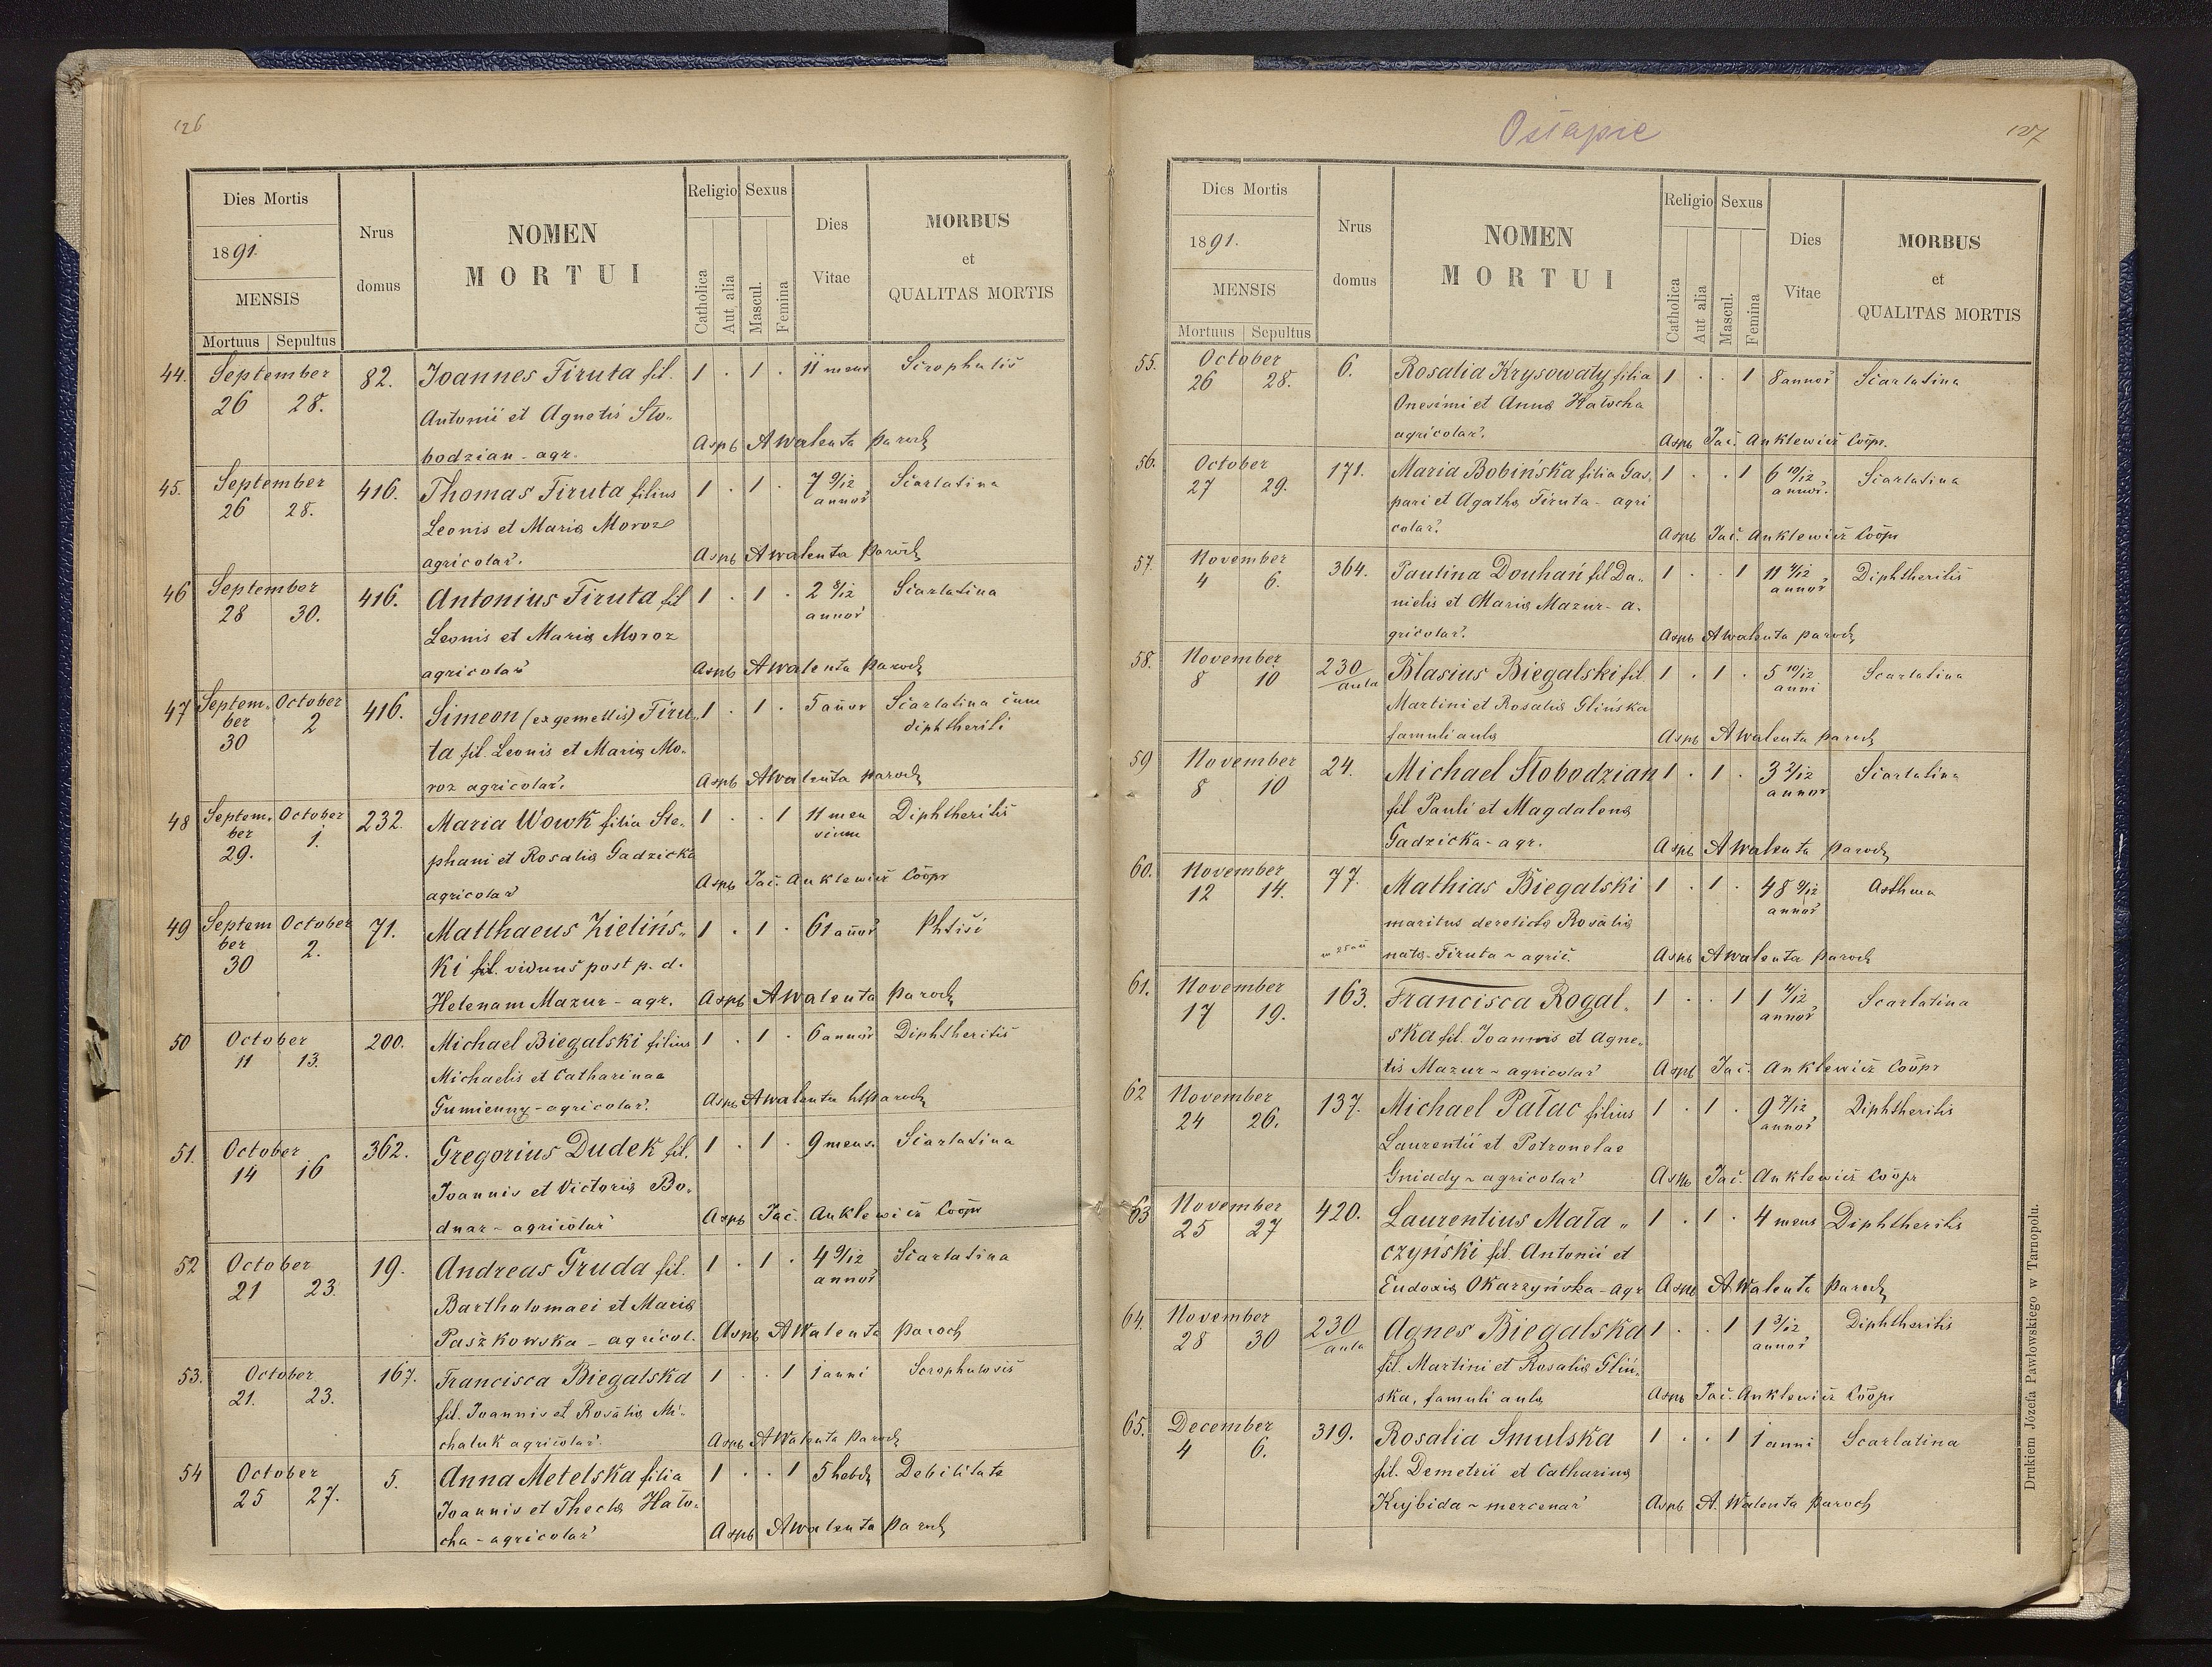 126
Dies Mortis
1891.
MENSIS
Mortuus Sepultus
Nrus domus
NOMEN
MORTUI
Religio Sexus
Catholica Aut alia Mascul. Femina
Dies Vitae
MORBUS
et
QUALITAS MORTIS
44. September 82. Joannes Firuta fil. 1 . 1 . 11 mens Scrophulis
26 28. Antonii et Agnetis Sło-
bodzian - agr. Aspb A Walenta Paroch
45. September 416. Thomas Firuta filius 1 . 1 . 7 9/12 Scarlatina
26 28. Leonis et Maria Moroz annor
agricolar. Aspb A Walenta Paroch
46 September 416. Antonius Firuta fil 1 . 1 . 2 8/12 Scarlatina
28 30. Leonis et Maria Moroz annor
agricolar Aspb A Walenta Paroch
47 Septem- October 416. Simeon (ex gemellis) Firu- 1 . 1 . 5 annor Scarlatina cum
ber 2 diphtheriti
30 ta fil. Leonis et Maria Mo-
roz agricolar. Aspb A Walenta Paroch
48 Septem- October 232. Maria Wowk filia Ste- 1 . . 1 11 men Diphtheritis
ber 1. sium
29. phani et Rosalia Gadzicka
agricolar Aspb Jac. Anklewicz Coopr
49 Septem October 71. Matthaeus Zielińs- 1 . 1 . 61 annor Phtisi
ber 2.
30 ki fil. viduus post p. d.
Helenam Mazur - agr. Aspb A Walenta Paroch
50 October 200. Michael Biegalski filius 1 . 1 . 6 annor Diphtheritis
11 13. Michaelis et Catharinae
Gumienny - agricolar. Aspb A Walenta Paroch
51. October 362. Gregorius Dudek fil. 1 . 1 . 9 mens. Scarlatina
14 16 Joannis et Victoria Bo-
dnar - agricolar Aspb Jac. Anklewicz Coopr
52 October 19. Andreas Gruda fil. 1 . 1 . 4 9/12 Scarlatina
21 23. Bartholomaei et Maria annor
Paszkowska - agricol. Aspb A Walenta Paroch
53. October 167. Francisca Biegalska 1 . . 1 1 anni Scrophulosis
21. 23. fil. Joannis et Rosalia Mi-
chaluk agricolar. Aspb A Walenta Paroch
54 October 5. Anna Metelska filia 1 . . 1 5 hebd Debilitate
25 27. Joannis et Thecla Hało-
cha - agricolar Aspb A Walenta Paroch
Ostapie
127
Dies Mortis
1891.
MENSIS
Mortuus Sepultus
Nrus domus
NOMEN
MORTUI
Religio Sexus
Catholica Aut alia Mascul. Femina
Dies Vitae
MORBUS
et
QUALITAS MORTIS
55. October 6. Rosalia Krysowaty filia 1 . . 1 8 annor Scarlatina
26 28. Onesimi et Anna Hałocha
agricolar. Aspb Jac. Anklewicz Coopr.
56. October 171. Maria Bobińska filia Gas- 1 . . 1 6 10/12 Scarlatina
27 29. pari et Agatha Firuta - agri annor.
colar. Aspb Jac. Anklewicz Coopr
57. November 364. Paulina Douhań fil Da- 1 . . 1 11 4/12 Diphtheritis
4 6. nielis et Maria Mazur - a- annor
gricolar. Aspb A Walenta paroch
58. November 230/aula Blasius Biegalski fil. 1 . 1 . 5 10/12 Scarlatina
8 10 Martini et Rosalia Glińska anni
famuli aula Aspb A Walenta paroch
59 November 24. Michael Słobodzian 1 . 1 . 3 2/12 Scarlatina
8 10 fil Pauli et Magdalena annor
Gadzicka - agr. Aspb A Walenta Paroch
60. November 77. Mathias Biegalski 1 . 1 . 48 9/12 Asthma
12 14. maritus derelicta Rosalia annor
nata Firuta ~ agric. Aspb A Walenta Paroch
61. November 163. Francisca Rogal- 1 . . 1 1 4/12 Scarlatina
17 19. ska fil. Joannis et Agne- annor
tis Mazur ~ agricolar Aspb Jac. Anklewicz Coopr
62 November 137. Michael Pałac filius 1 . 1 . 9 7/12 Diphtheritis
24 26. Laurentii et Petronelae annor
Gniady ~ agricolar Aspb Jac. Anklewicz Coopr
63 November 420. Laurentius Mała- 1 . 1 . 4 mens Diphtheritis
25 27 czyński fil. Antonii et
Eudoxia Okarzyńska - agr Aspb A Walenta Paroch
64. November 230/aula Agnes Biegalska 1 . . 1 1 3/12 Diphtheritis
28 30 fil. Martini et Rosalia Gliń- annor
ska, famuli aula Aspb Jac. Anklewicz Coopr
65. December 319. Rosalia Smulska 1 . . 1 1 anni Scarlatina
4 6. fil. Demetrii et Catharina
Kujbida ~ mercenar Aspb A. Walenta Paroch
Drukiem Józefa Pawłowskiego w Tarnopolu.